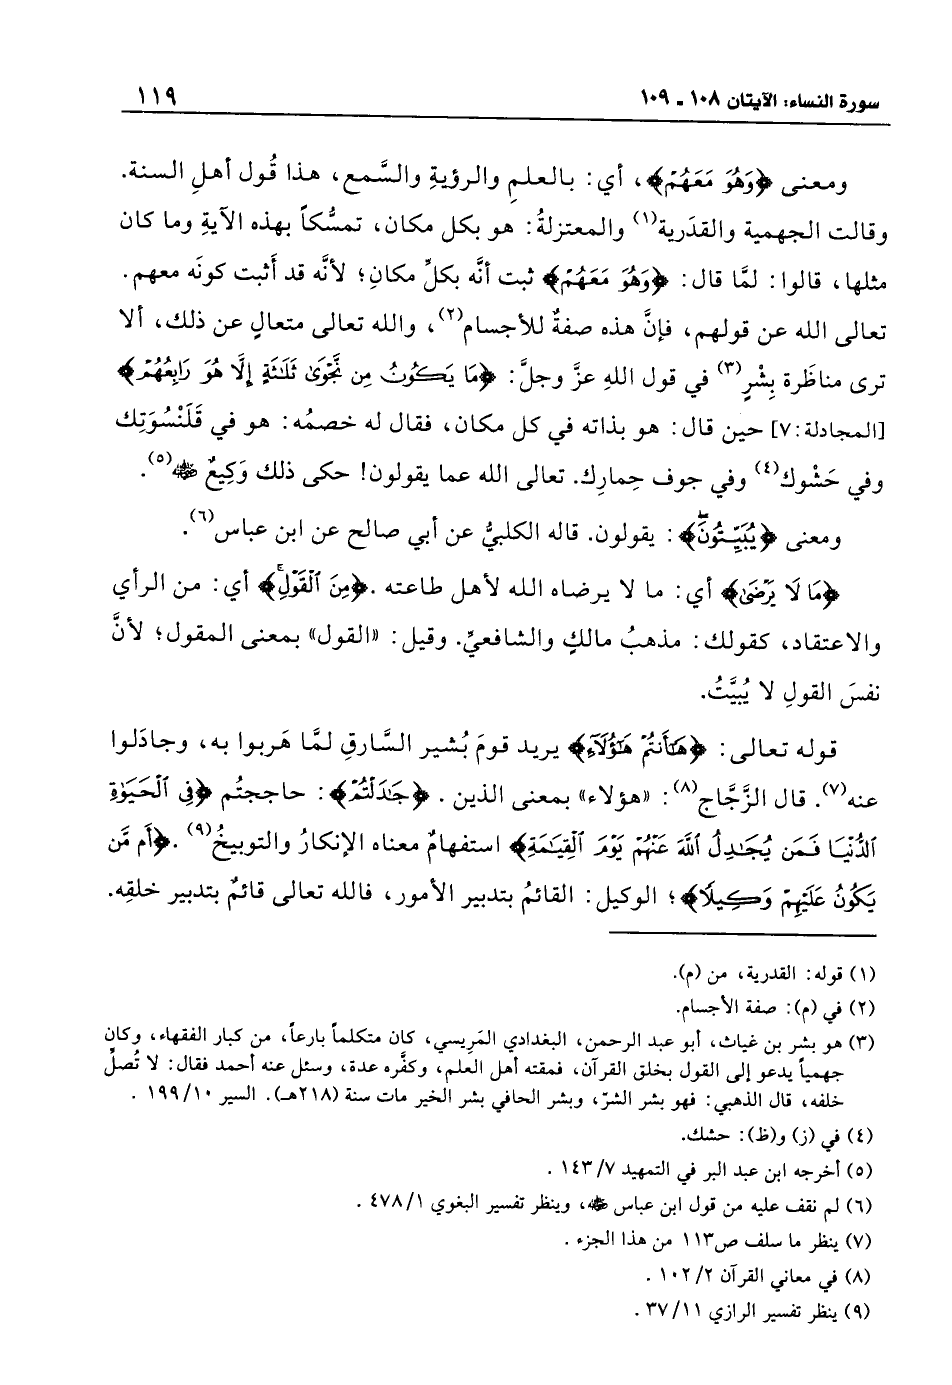 سورة النساء: الآيتان ١٠٨ - ١٠٩
١١٩
ومعنى ﴿وَهُوَ مَعَهُمْ﴾، أي: بالعلمِ والرؤيةِ والسَّمع، هذا قُول أهلِ السنة.
وقالت الجهمية والقدَرية(١) والمعتزلةُ: هو بكل مكان، تمسُّكاً بهذه الآيةِ وما كان
مثلها، قالوا: لمَّا قال: ﴿وَهُوَ مَعَهُمْ﴾ ثبت أنَّه بكلِّ مكانٍ؛ لأنَّه قد أَثبت كونَه معهم.
تعالى الله عن قولهم، فإنَّ هذه صفةٌ للأجسام(٢)، والله تعالى متعالٍ عن ذلك، ألا
ترى مناظَرة بِشْرٍ(٣) في قول اللهِ عزَّ وجلَّ: ﴿مَا يَكُونُ مِن نَّجْوَىٰ ثَلَاثَةٍ إِلَّا هُوَ رَابِعُهُمْ﴾
[المجادلة: ٧] حين قال: هو بذاته في كل مكان، فقال له خصمُه: هو في قَلَنْسُوَتِك
وفي حَشْوك(٤) وفي جوف حِمارِك. تعالى الله عما يقولون! حكى ذلك وَكِيعٌ ﷺ(٥).
ومعنى ﴿يُبَيِّتُونَ﴾: يقولون. قاله الكلبيُّ عن أبي صالح عن ابن عباس(٦).
﴿مَا لَا يَرْضَىٰ﴾ أي: ما لا يرضاه الله لأهل طاعته. ﴿مِنَ ٱلْقَوْلِ﴾ أي: من الرأي
والاعتقاد، كقولك: مذهبُ مالكٍ والشافعيِّ. وقيل: «القول» بمعنى المقول؛ لأنَّ
نفسَ القولِ لا يُبيَّتُ.
قوله تعالى: ﴿هَٰٓأَنتُمْ هَٰٓؤُلَآءِ﴾ يريد قومَ بُشير السَّارقِ لمَّا هَربوا به، وجادَلوا
عنه(٧). قال الزَّجَّاج(٨): «هؤلاء» بمعنى الذين. ﴿جَٰدَلْتُمْ﴾: حاججتُم ﴿فِى ٱلْحَيَوٰةِ
ٱلدُّنْيَا فَمَن يُجَٰدِلُ ٱللَّهَ عَنْهُمْ يَوْمَ ٱلْقِيَٰمَةِ﴾ استفهامٌ معناه الإنكارُ والتوبيخُ(٩). ﴿أَم مَّن
يَكُونُ عَلَيْهِمْ وَكِيلًا﴾؛ الوكيل: القائمُ بتدبير الأمور، فالله تعالى قائمٌ بتدبير خلقِه.
(١) قوله: القدرية، من (م).
(٢) في (م): صفة الأجسام.
(٣) هو بشر بن غياث، أبو عبد الرحمن، البغدادي المَرِيسي، كان متكلماً بارعاً، من كبار الفقهاء، وكان
جهمياً يدعو إلى القول بخلق القرآن، فمقته أهل العلم، وكفَّره عدة، وسئل عنه أحمد فقال: لا تُصلِّ
خلفه، قال الذهبي: فهو بشر الشرّ، وبشر الحافي بشر الخير مات سنة (٢١٨هـ). السير ١٩٩/١٠ .
(٤) في (ز) و(ظ): حشك.
(٥) أخرجه ابن عبد البر في التمهيد ١٤٣/٧ .
(٦) لم نقف عليه من قول ابن عباس ﷺ، وينظر تفسير البغوي ٤٧٨/١ .
(٧) ينظر ما سلف ص١١٣ من هذا الجزء .
(٨) في معاني القرآن ١٠٢/٢ .
(٩) ينظر تفسير الرازي ٣٧/١١ .